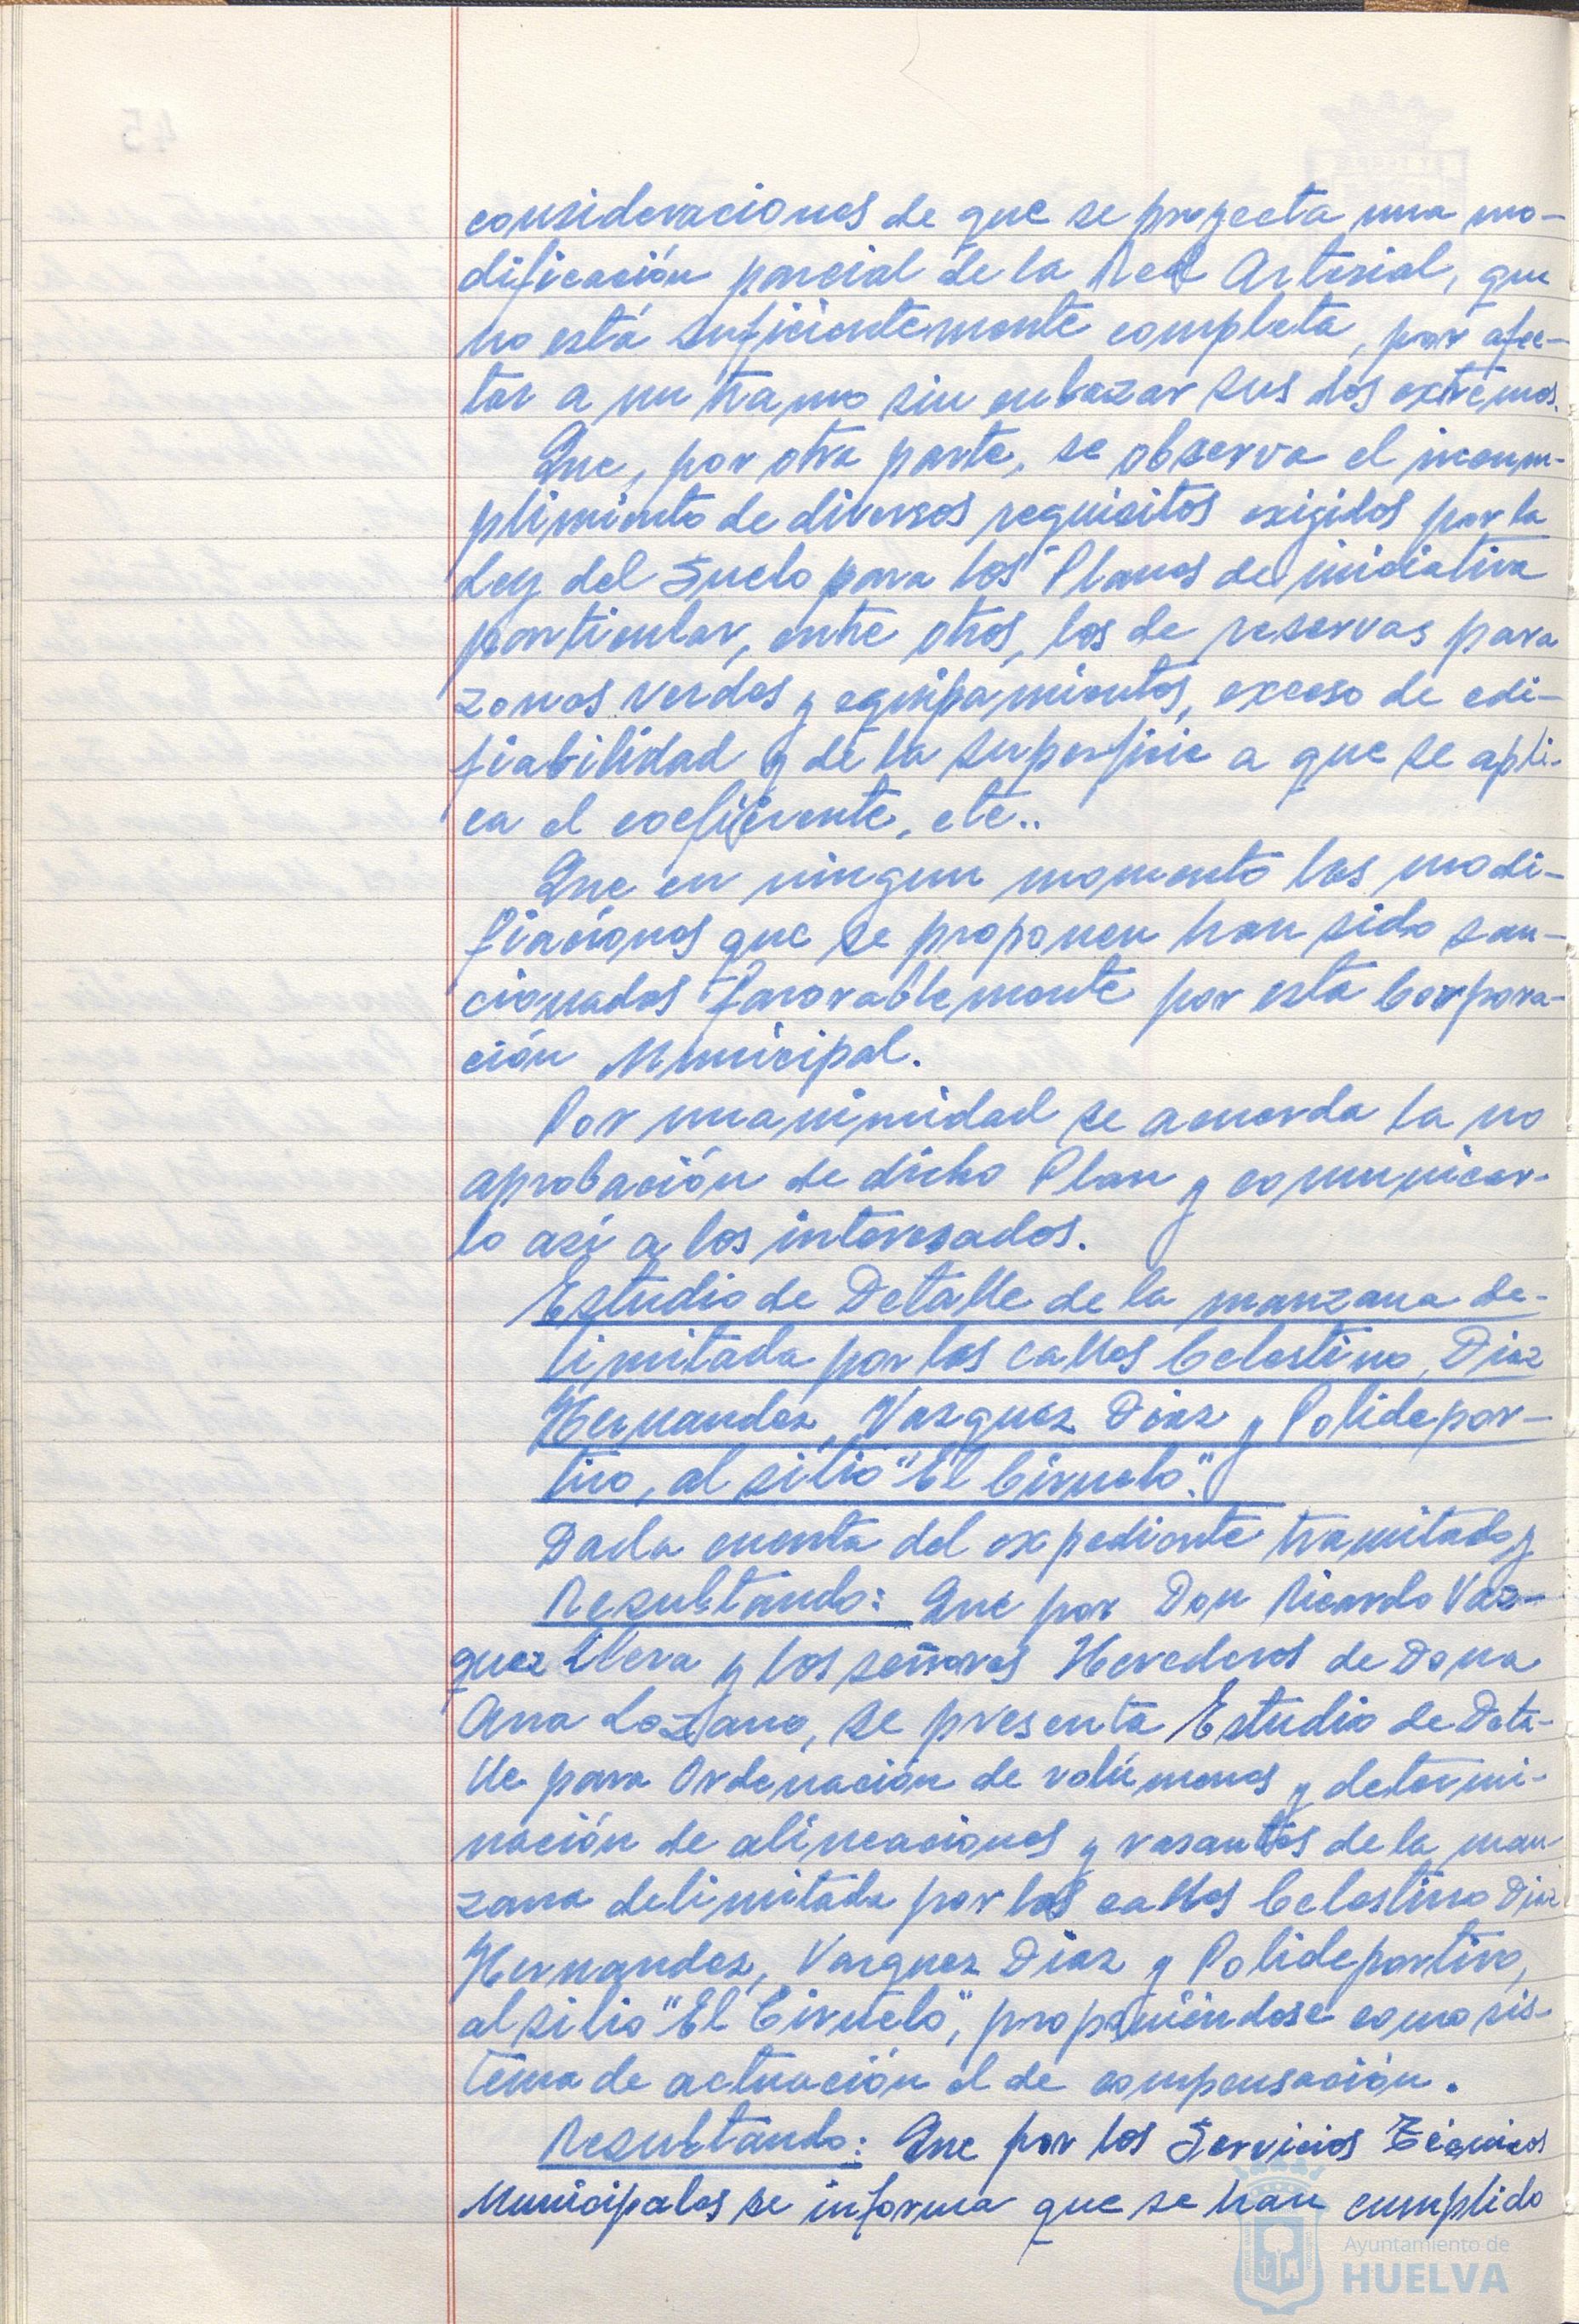 consideraciones de que se proyecta una mo-
dificación parcial de la Red Arterial, que
no está suficientemente completa, por afec-
tar a un tramo sin enlazar sus dos extremos.
Que, por otra parte, se observa el incum-
plimiento de diversos requisitos exigidos por la
Ley del Suelo para los Planes de iniciativa
particular, entre otros, los de reservas para
zonas verdes y equipamientos, exceso de edi-
fiabilidad y de la superficie a que se apli-
ca el coeficiente, etc..
Que en ningun momento las modi-
fiaciones que se proponen han sido san-
cionadas favorablemente por esta Corpora-
ción Municipal.
Por unanimidad se acuerda la no
aprobación de dicho Plan y comunicar-
lo así a los interesados.
Estudio de Detalle de la manzana de-
limitada por las calles Celestino, Diaz
Hernandez, Vazquez Diaz y Polidepor-
tivo, al sitio "El Ciruelo".
Dada cuenta del expediente tramitado y
Resultando: Que por Don Ricardo Vaz-
quez Llera y los señores Herederos de Dona
Ana Lozano, se presenta Estudio de Deta-
lle para Ordenación de volúmenes y determi-
nación de alineaciones y rasantes de la man-
zana delimitada por las calles Celestino Diaz
Hernandez, Vazquez Diaz y Polideportivo,
al sitio "El Ciruelo", proponiéndose como sis-
tema de actuación el de compensación.
Resultando: Que por los Servicios Técnicos
Municipales se informa que se han cumplido
Ayuntamiento de
HUELVA
45